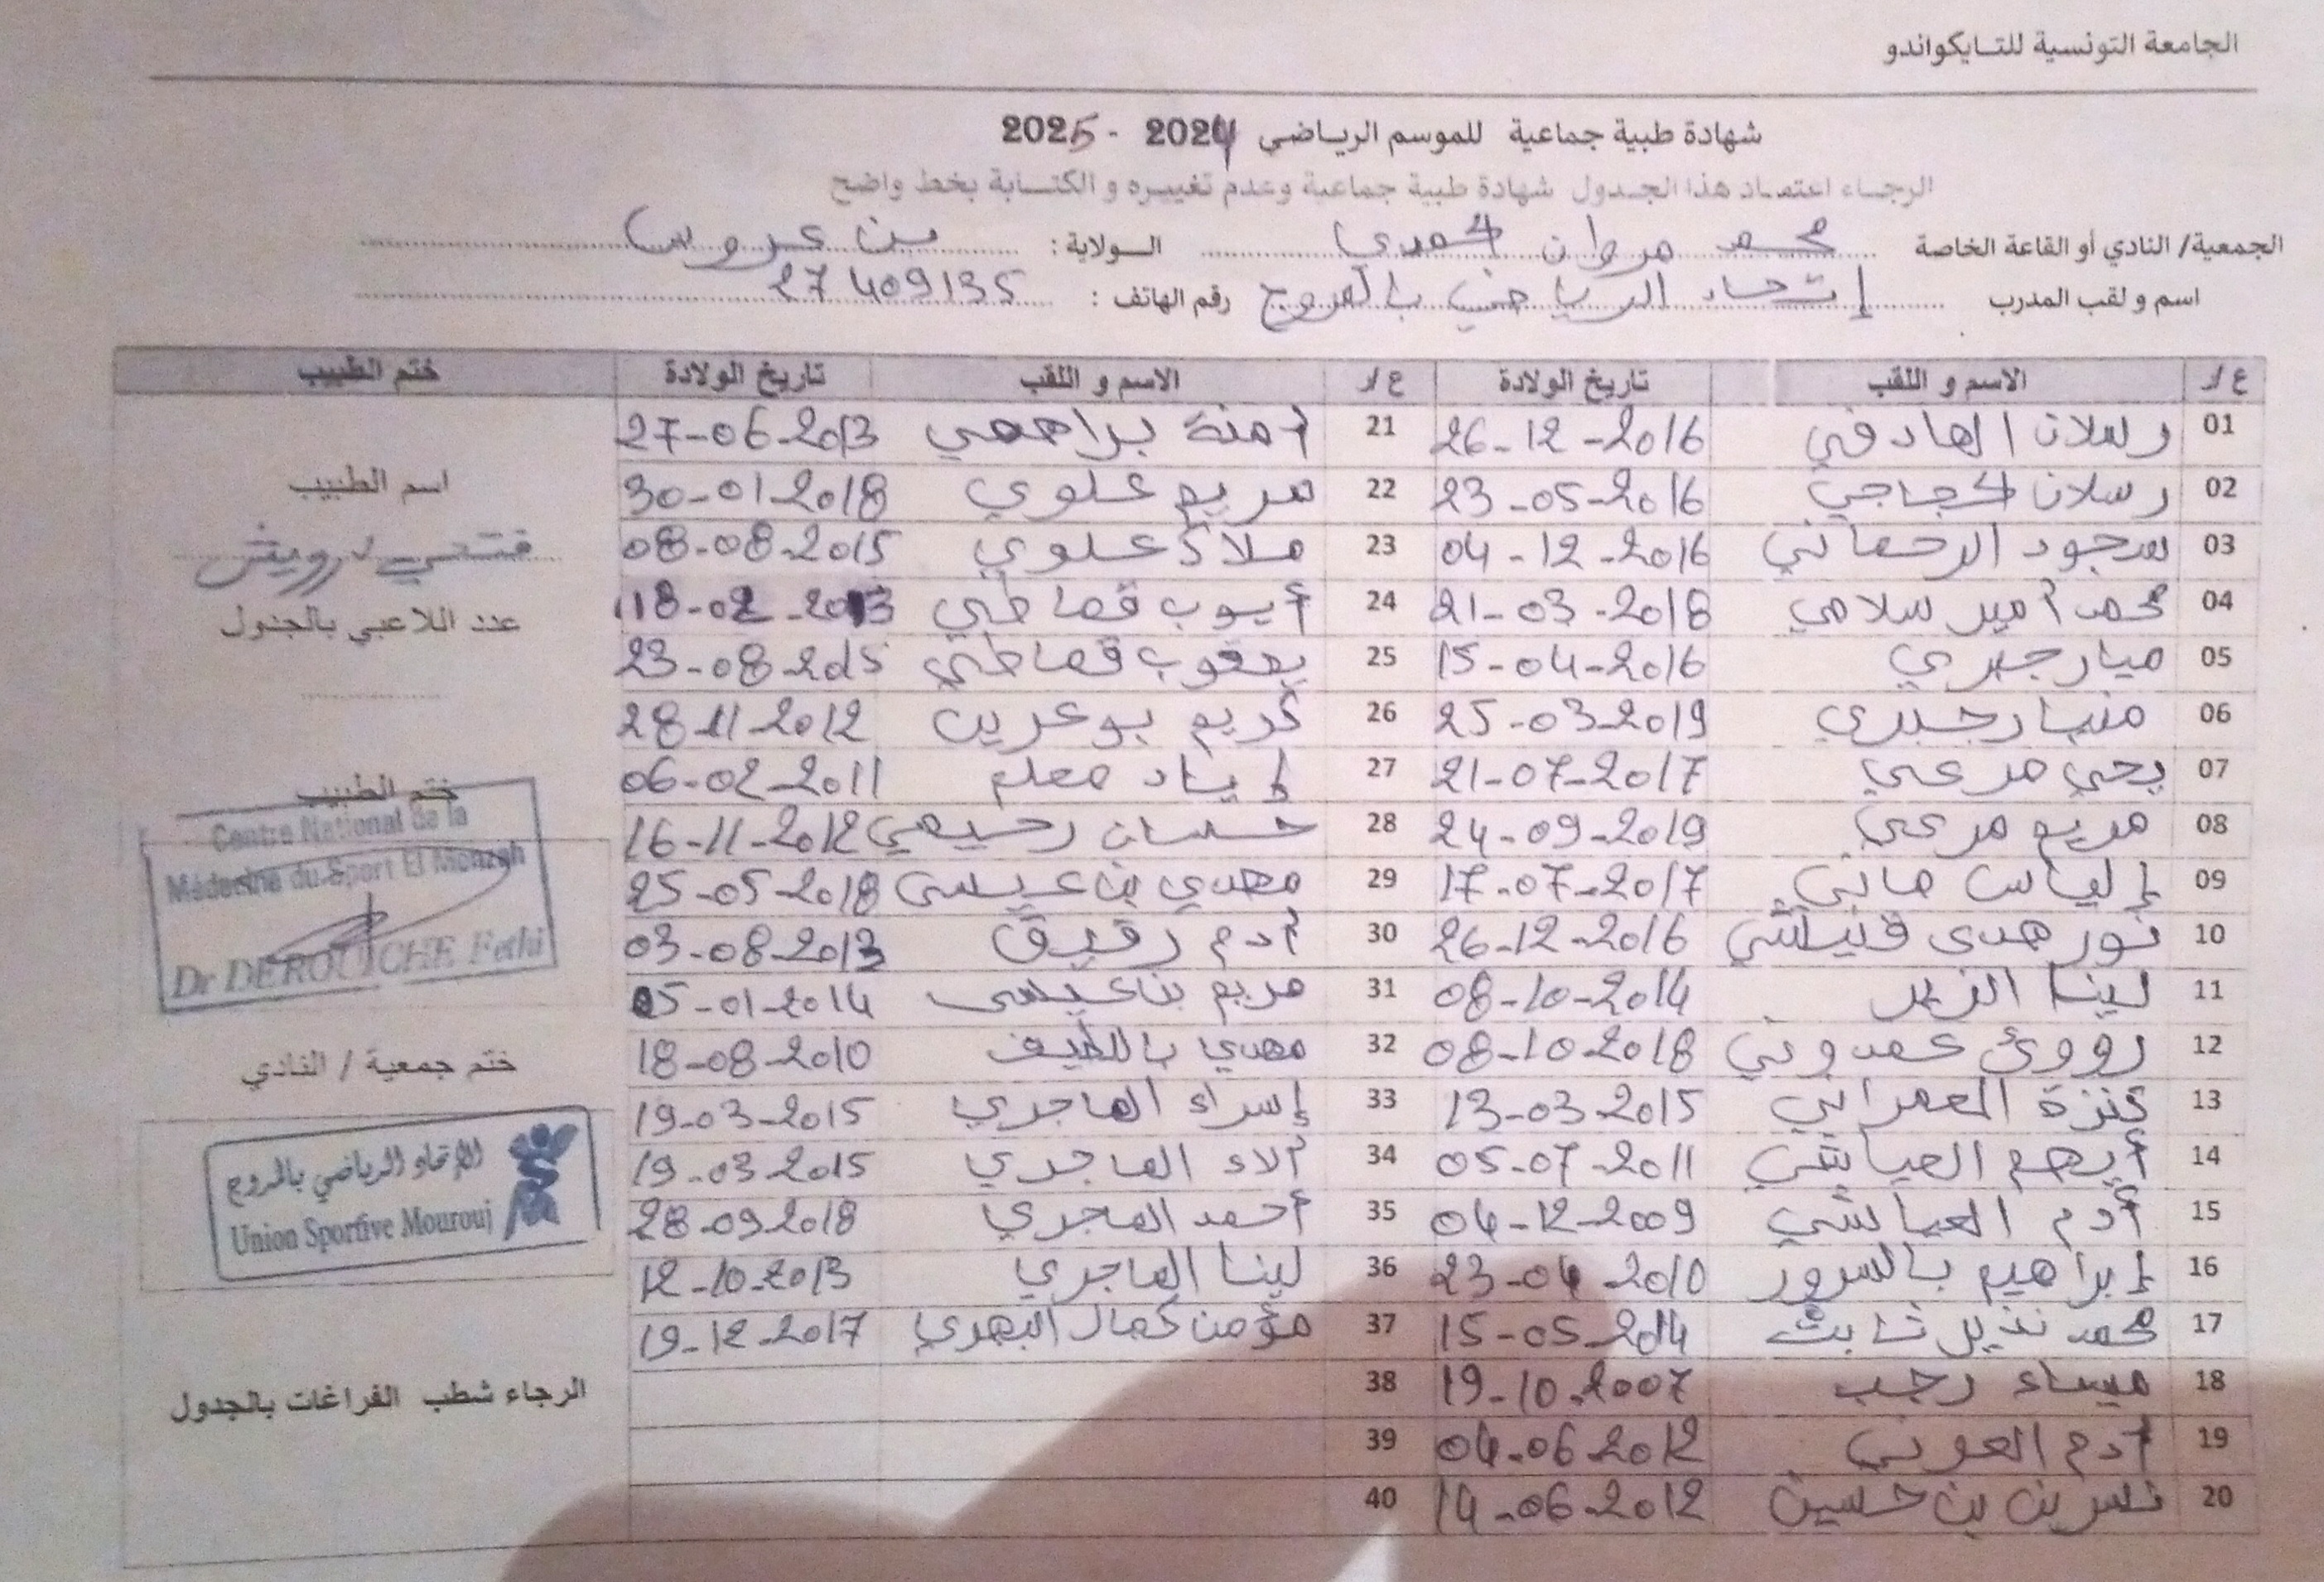 الجامعة التونسية للتايكواندو
شهادة طبية جماعية للموسم الرياضي 2024 - 2025
الرجاء اعتماد هذا الجدول شهادة طبية جماعية وعدم تغييره و الكتابة بخط واضح
الجمعية/ النادي أو القاعة الخاصة محمد مروان الحمدي الولاية: بن عروس
اسم و لقب المدرب إتحاد الرياضي بالمروج رقم الهاتف: 27409135
ع/ر الاسم و اللقب تاريخ الولادة ع/ر الاسم و اللقب تاريخ الولادة ختم الطبيب
01 رسلان الهادفي 26-12-2016 21 آمنة براهمي 27-06-2013
02 رسلان الحجاجي 23-05-2016 22 مريم علوي 30-01-2018
اسم الطبيب
03 سجود الرحماني 04-12-2016 23 ملاك علوي 08-08-2015
فتحي درويش
04 محمد أمير سلامي 21-03-2018 24 أيوب قماطي 18-02-2013
عدد اللاعبي بالجدول
05 ميار جبري 15-04-2016 25 يعقوب قماطي 23-08-2015
06 جبري 25-03-2019 26 كريم بوعرين 28-11-2012
07 يحي مرعي 21-07-2017 27 إياد معلم 06-02-2011
ختم الطبيب
08 مريم مرعي 24-09-2019 28 حسان رحيمي 16-11-2012
Centre National de la
Médecine du Sport El Menzah
09 إلياس هاني 17-07-2017 29 مهدي بن عيسى 25-05-2018
10 نور هدى 26-12-2016 30 آدم رقيق 03-08-2013
Dr DEROUICHE Fethi
11 لينا 08-10-2014 31 مريم بن عيسى 05-01-2014
12 عمدوني 08-10-2018 32 مهدي باللطيف 18-08-2010
ختم جمعية / النادي
13 كنزة العمراني 13-03-2015 33 إسراء الهاجري 19-03-2015
14 أيهم العياشي 05-07-2011 34 آلاء الهاجري 19-03-2015
الإتحاد الرياضي بالمروج
15 آدم العياشي 04-12-2009 35 أحمد الهجري 28-09-2018
Union Sportive Mourouj
16 إبراهيم بالسرور 23-04-2010 36 لينا الهاجري 12-10-2013
17 محمد نذير ثابت 15-05-2014 37 مؤمن كمال 19-12-2017
18 ميساء رجب 19-10-2007 38
الرجاء شطب الفراغات بالجدول
19 آدم العوني 04-06-2012 39
20 نسرين بن حسين 14-06-2012 40